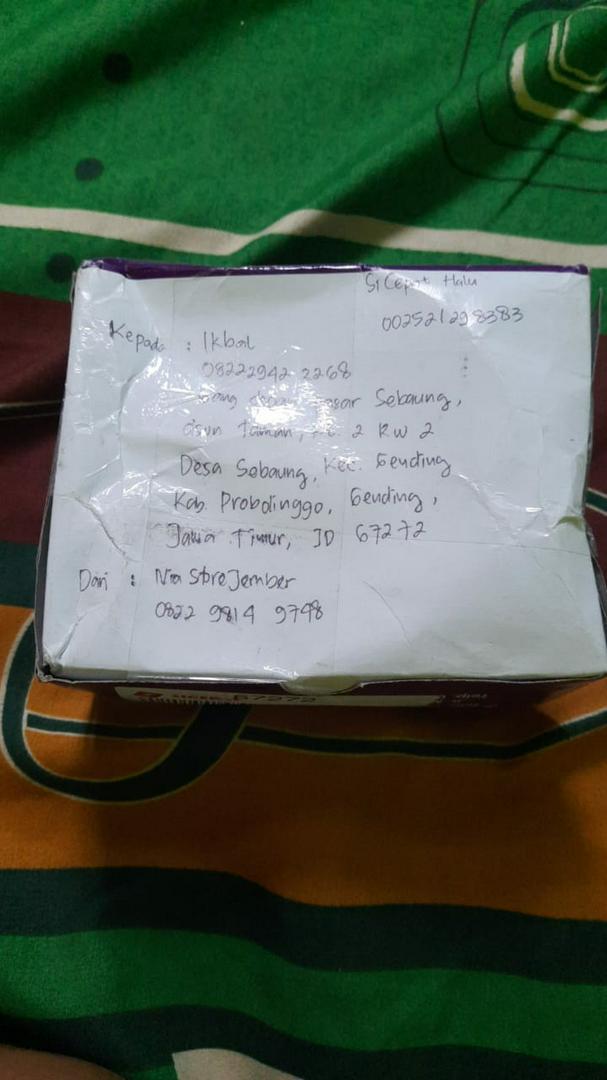 SiCepat Halu
002521298383
Kepada : Ikbal
08222942 2268
Sebaung,
Taman, 2 RW 2
Desa Sebaung, Kec. Gending
Kab. Probolinggo, Gending,
Jawa Timur, ID 67272
Dari : Nia Store Jember
0822 9814 9748
67272